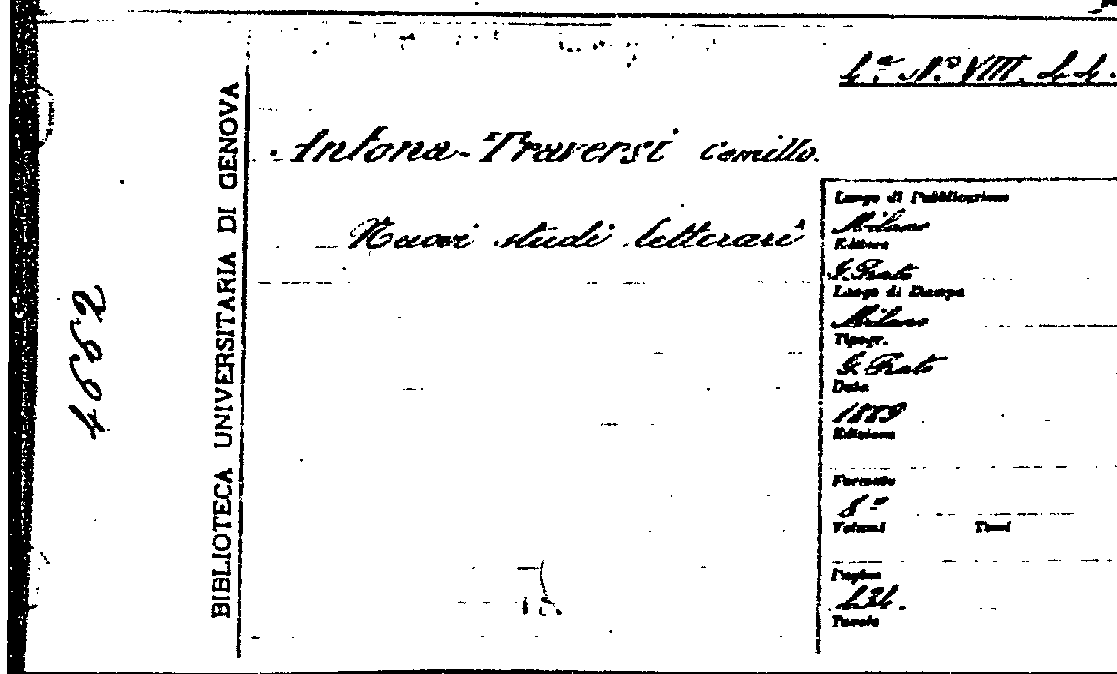 4.ª N.º VIII. 44.
BIBLIOTECA UNIVERSITARIA DI GENOVA
4662
Antona-Traversi Camillo.
Nuovi studi letterari
Luogo di Pubblicazione
Milano
Editore
G. Prato
Luogo di Stampa
Milano
Tipogr.
G. Prato
Data
1889
Edizione
Formato
8º
Volumi Tomi
Pagine
434.
Tavole